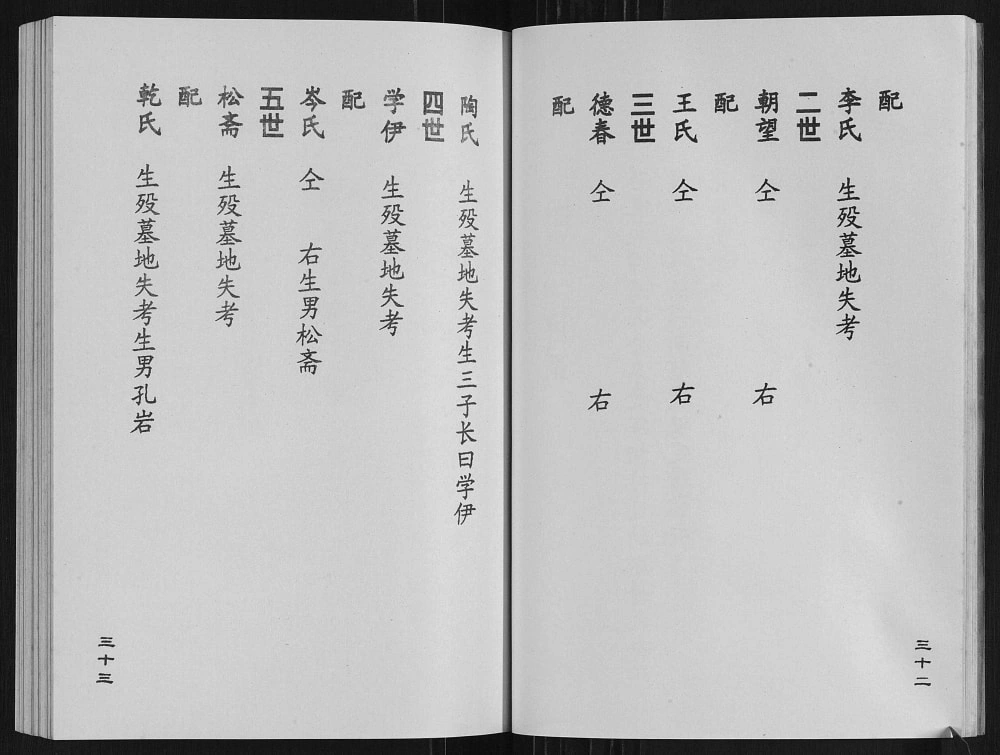 配
李氏 生殁墓地失考
二世
朝望 仝 右
配
王氏 仝 右
三世
德春 仝 右
配
三十二
陶氏 生殁墓地失考生三子长曰学伊
四世
学伊 生殁墓地失考
配
岑氏 仝 右生男松斋
五世
松斋 生殁墓地失考
配
乾氏 生殁墓地失考生男孔岩
三十三